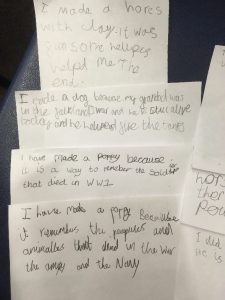 I made a hores
with clay. it was
fun some helpers
helped me The
end.
I made a dog because my grandad was
in the war and he is still alive
today and he helped fix the tanks
I have made a poppy because
it is a way to remember the soldiers
that died in WW1
I have made a poppy Because
it remembers the and
animalles that died in the war
the army and the Navy
hors
then
Pou
I did
he is